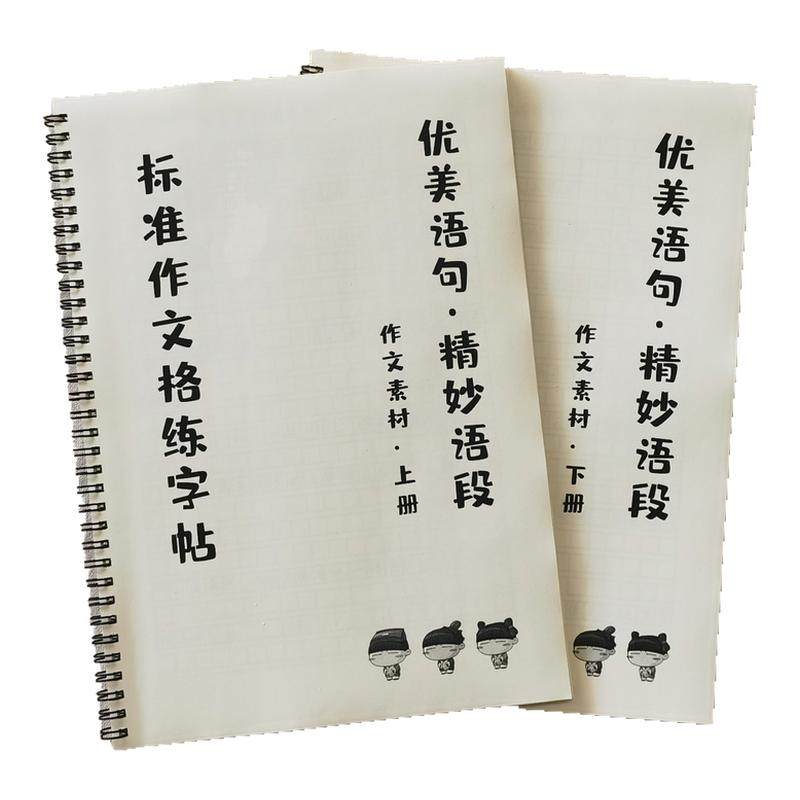 优美语句·精妙语段
作文素材·上册
标准作文格练字帖
优美语句·精妙语段
作文素材·下册